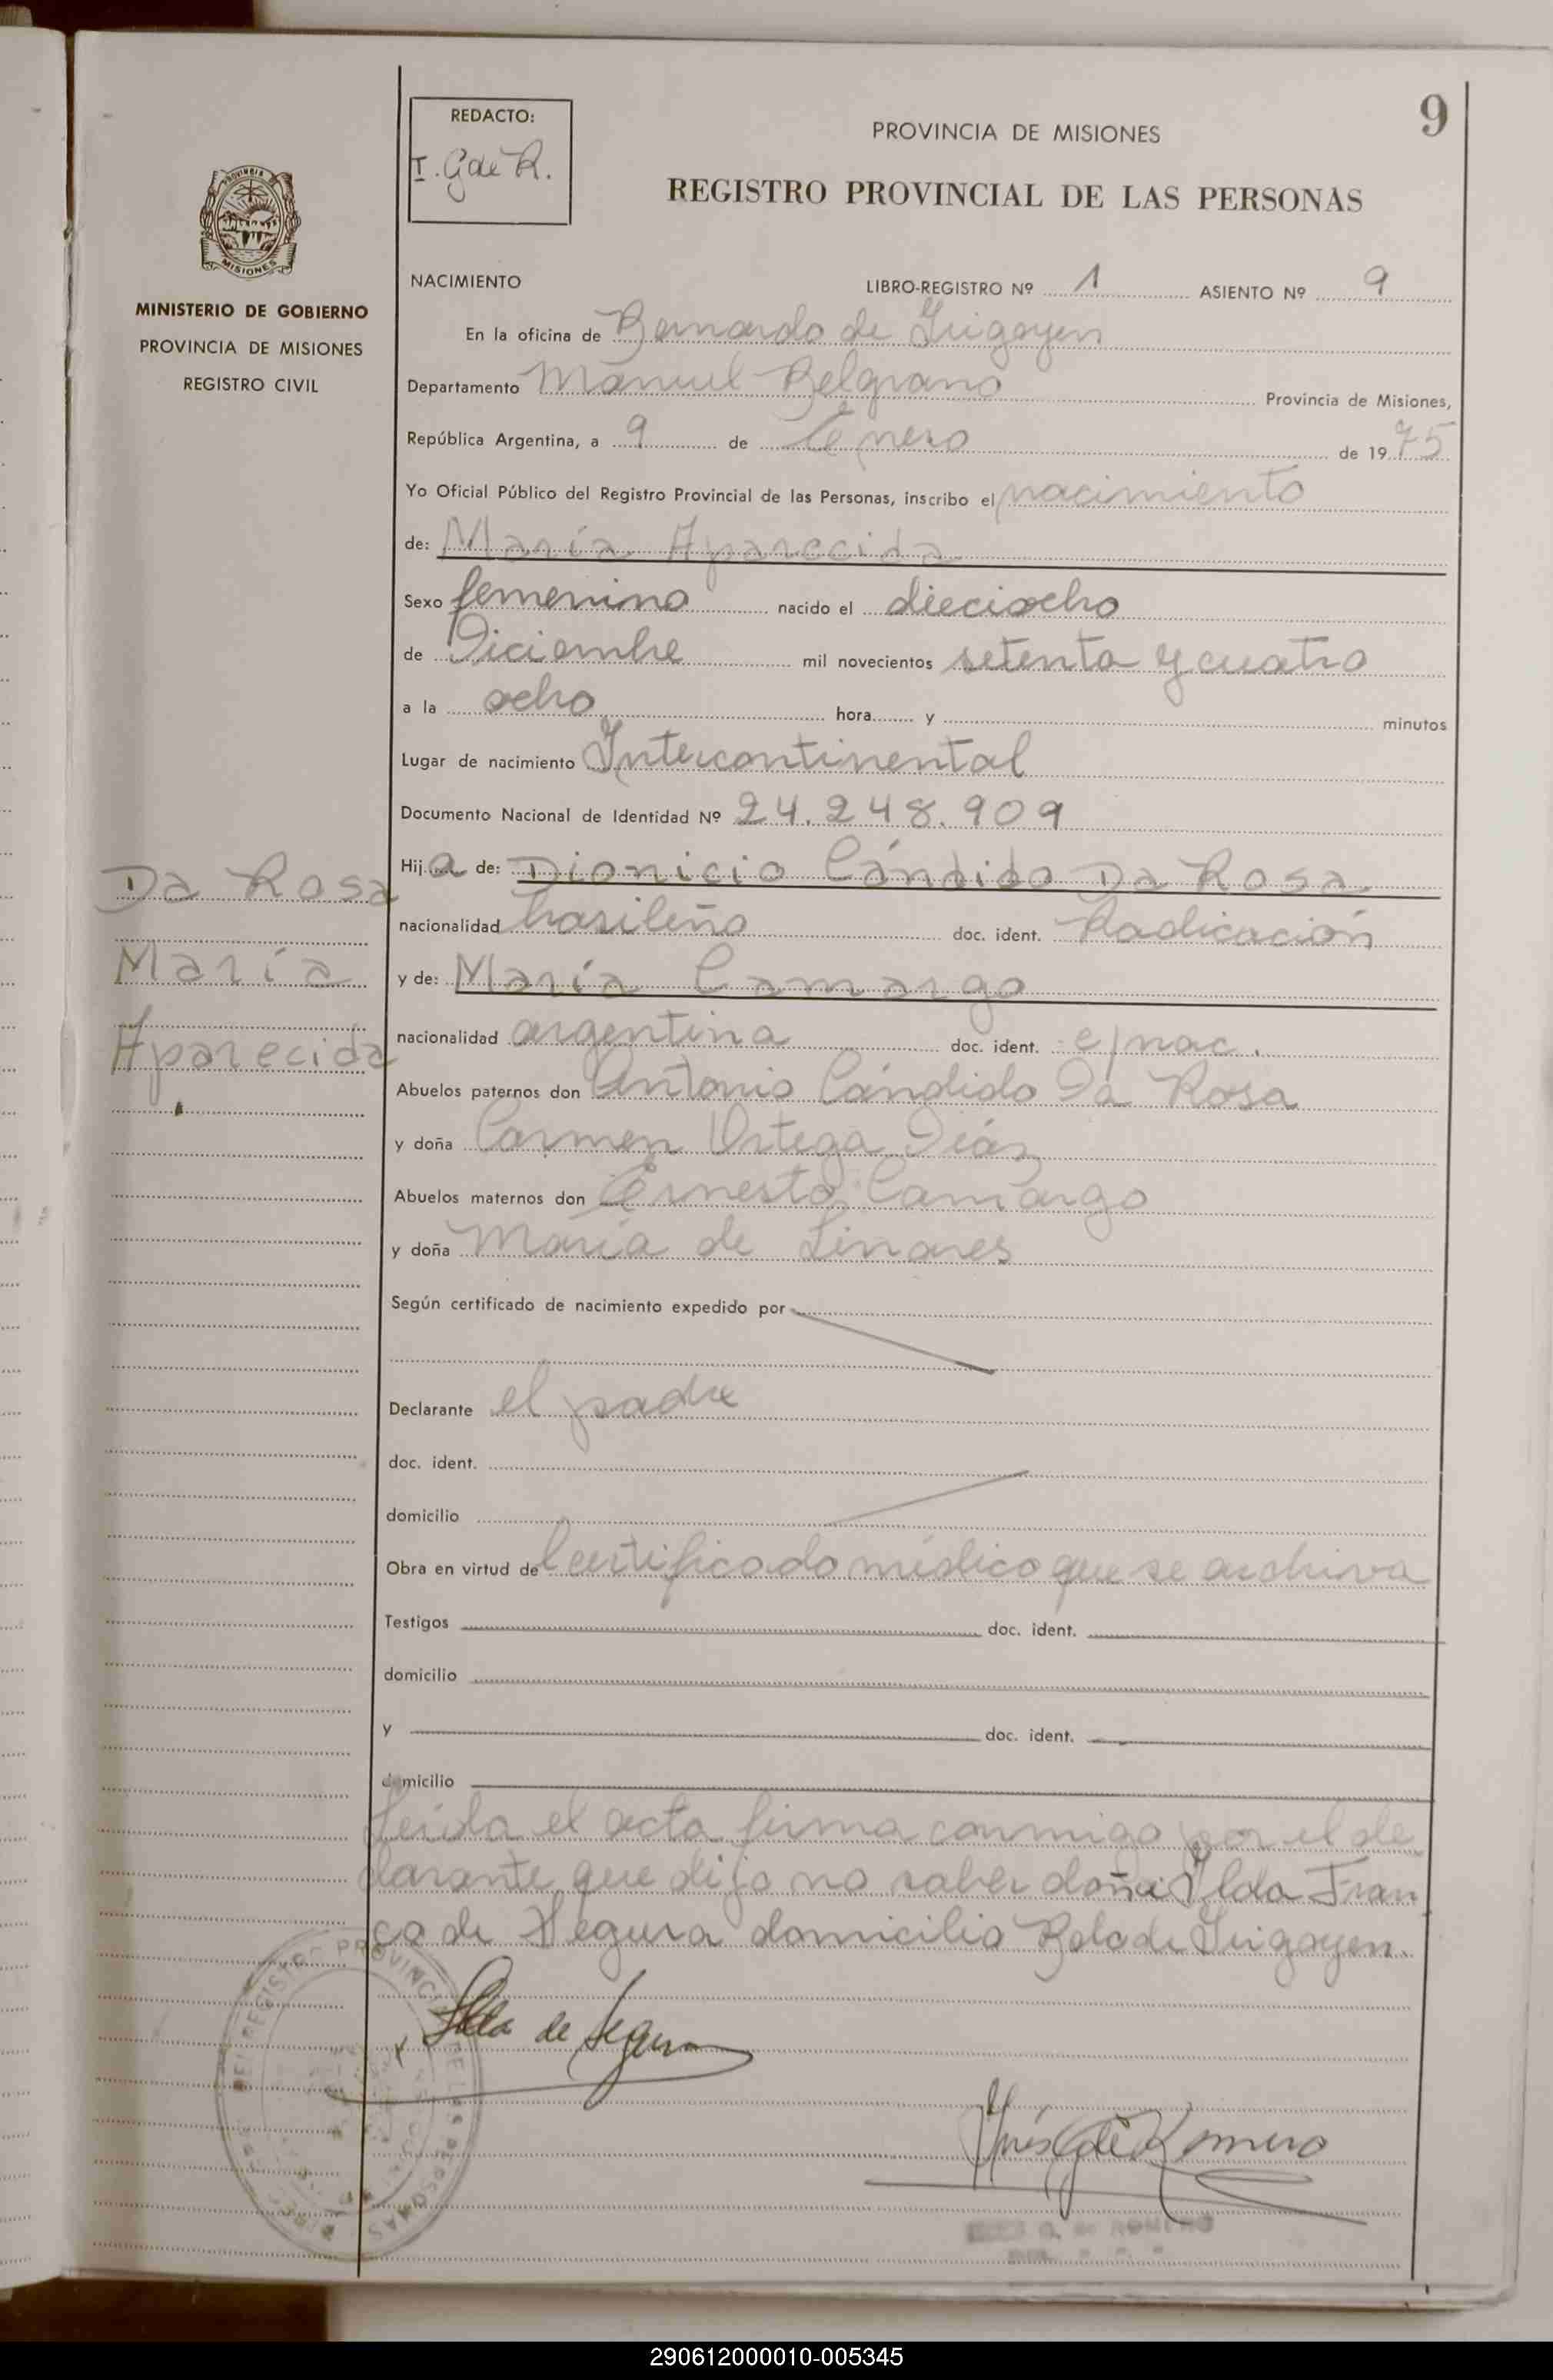 9
REDACTO:
I. G de R.
PROVINCIA DE MISIONES
REGISTRO PROVINCIAL DE LAS PERSONAS
PROVINCIA
MISIONES
MINISTERIO DE GOBIERNO
PROVINCIA DE MISIONES
REGISTRO CIVIL
NACIMIENTO LIBRO-REGISTRO Nº 1 ASIENTO Nº 9
En la oficina de Bernardo de Irigoyen
Departamento Manuel Belgrano Provincia de Misiones,
República Argentina, a 9 de Enero de 1975
Yo Oficial Público del Registro Provincial de las Personas, inscribo el nacimiento
de: María Aparecida
Sexo femenino nacido el dieciocho
de Diciembre mil novecientos setenta y cuatro
a la ocho hora y minutos
Lugar de nacimiento Intercontinental
Documento Nacional de Identidad Nº 24.248.909
Hija de: Dionicio Cándido Da Rosa
nacionalidad brasileña doc. ident. Radicación
y de: María Camargo
nacionalidad argentina doc. ident. c/nac.
Abuelos paternos don Antonio Cándido Da Rosa
y doña Carmen Ortega Diáz
Abuelos maternos don Ernesto Camargo
y doña María de Linares
Según certificado de nacimiento expedido por
Declarante el padre
doc. ident.
domicilio
Obra en virtud del certificado médico que se archiva
Testigos doc. ident.
domicilio
y doc. ident.
domicilio
leída el acta firma conmigo por el de
clarante que dijo no saber doña Ilda Fran
co de Segura domicilio Bdo de Irigoyen.
Da Rosa
María
Aparecida
Ilda de Segura
Inés G de Romero
G. de ROMERO
REGISTRO PROVINCIAL DE LAS PERSONAS
290612000010-005345